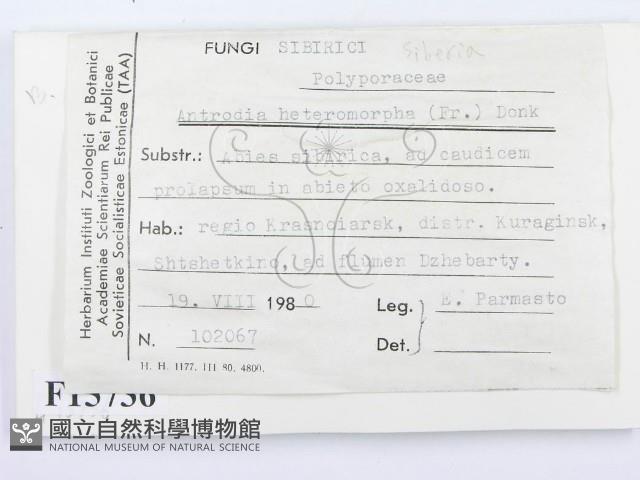 Herbarium Instituti Zoologici et Botanici
Academiae Scientiarum Rei Publicae
Sovieticae Socialisticae Estonicae (TAA)
FUNGI SIBIRICI Siberia
Polyporaceae
Antrodia heteromorpha (Fr.) Donk
Substr.: Abies sibirica, ad caudicem
prolapsum in abieto oxalidoso.
Hab.: regio Krasnoiarsk, distr. Kuraginsk,
Shtshetkino, ad flumen Dzhebarty.
19. VIII 1980
Leg. E. Parmasto
N. 102067
Det.
H. H. 1177. III 80. 4800.
F13736
國立自然科學博物館
NATIONAL MUSEUM OF NATURAL SCIENCE